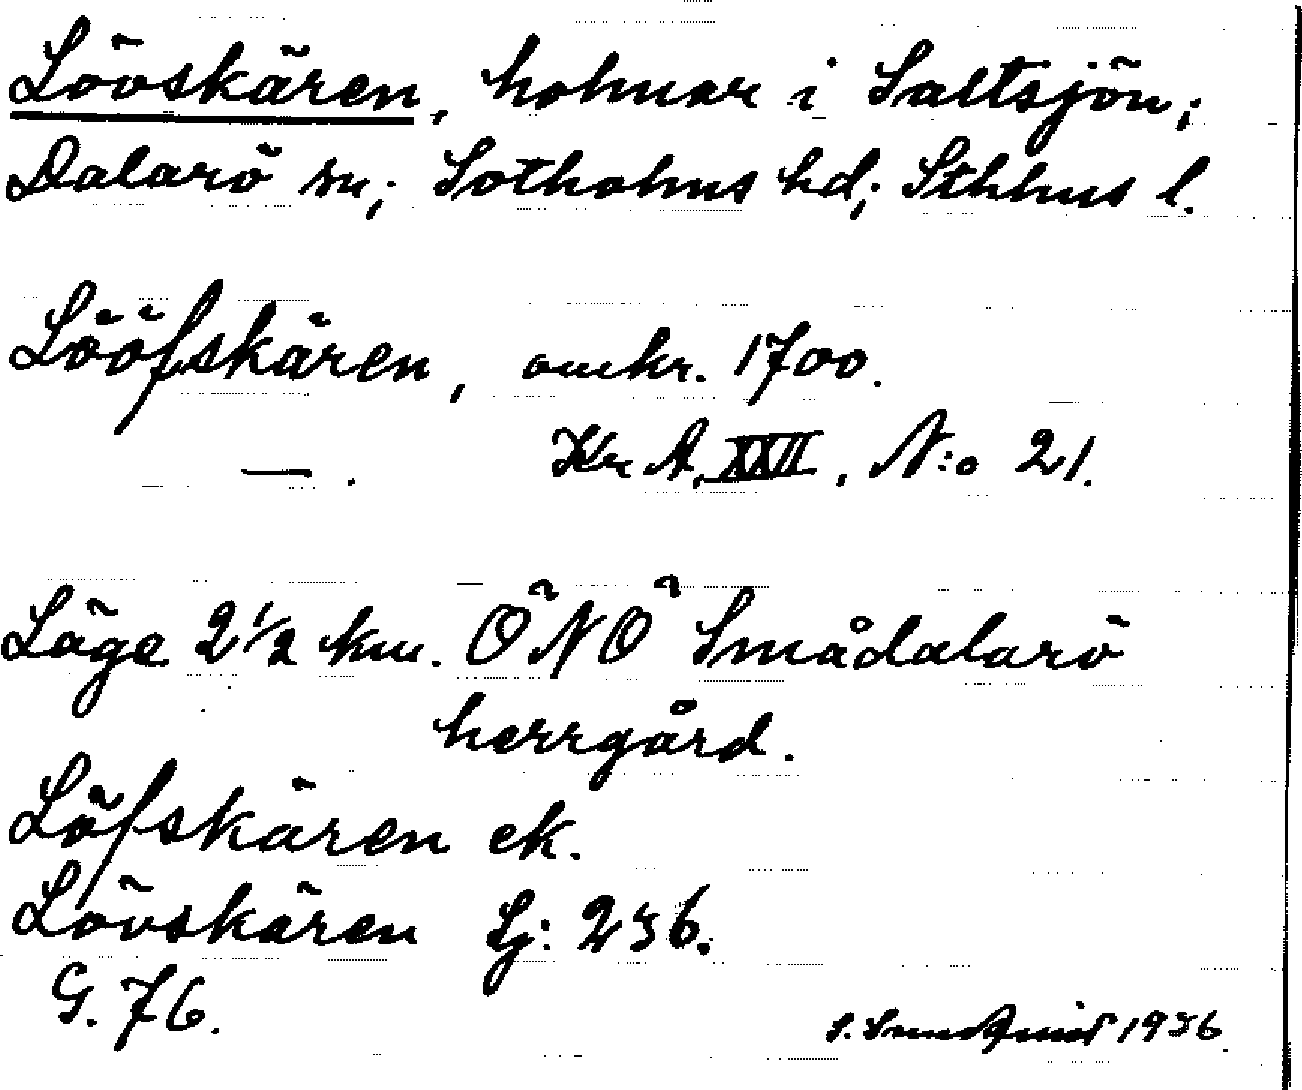 Lövskären, holmar i Saltsjön;
Dalarö sn; Sotholms hd; Sthlms l.
Lööfskären, omkr. 1700.
— . Kr A, XXII, N:o 21.
Läge 2 1/2 km. ÖNÖ Smådalarö
herrgård.
Löfskären ek.
Lövskären Sj: 236.
G. 76.
S. 1936.